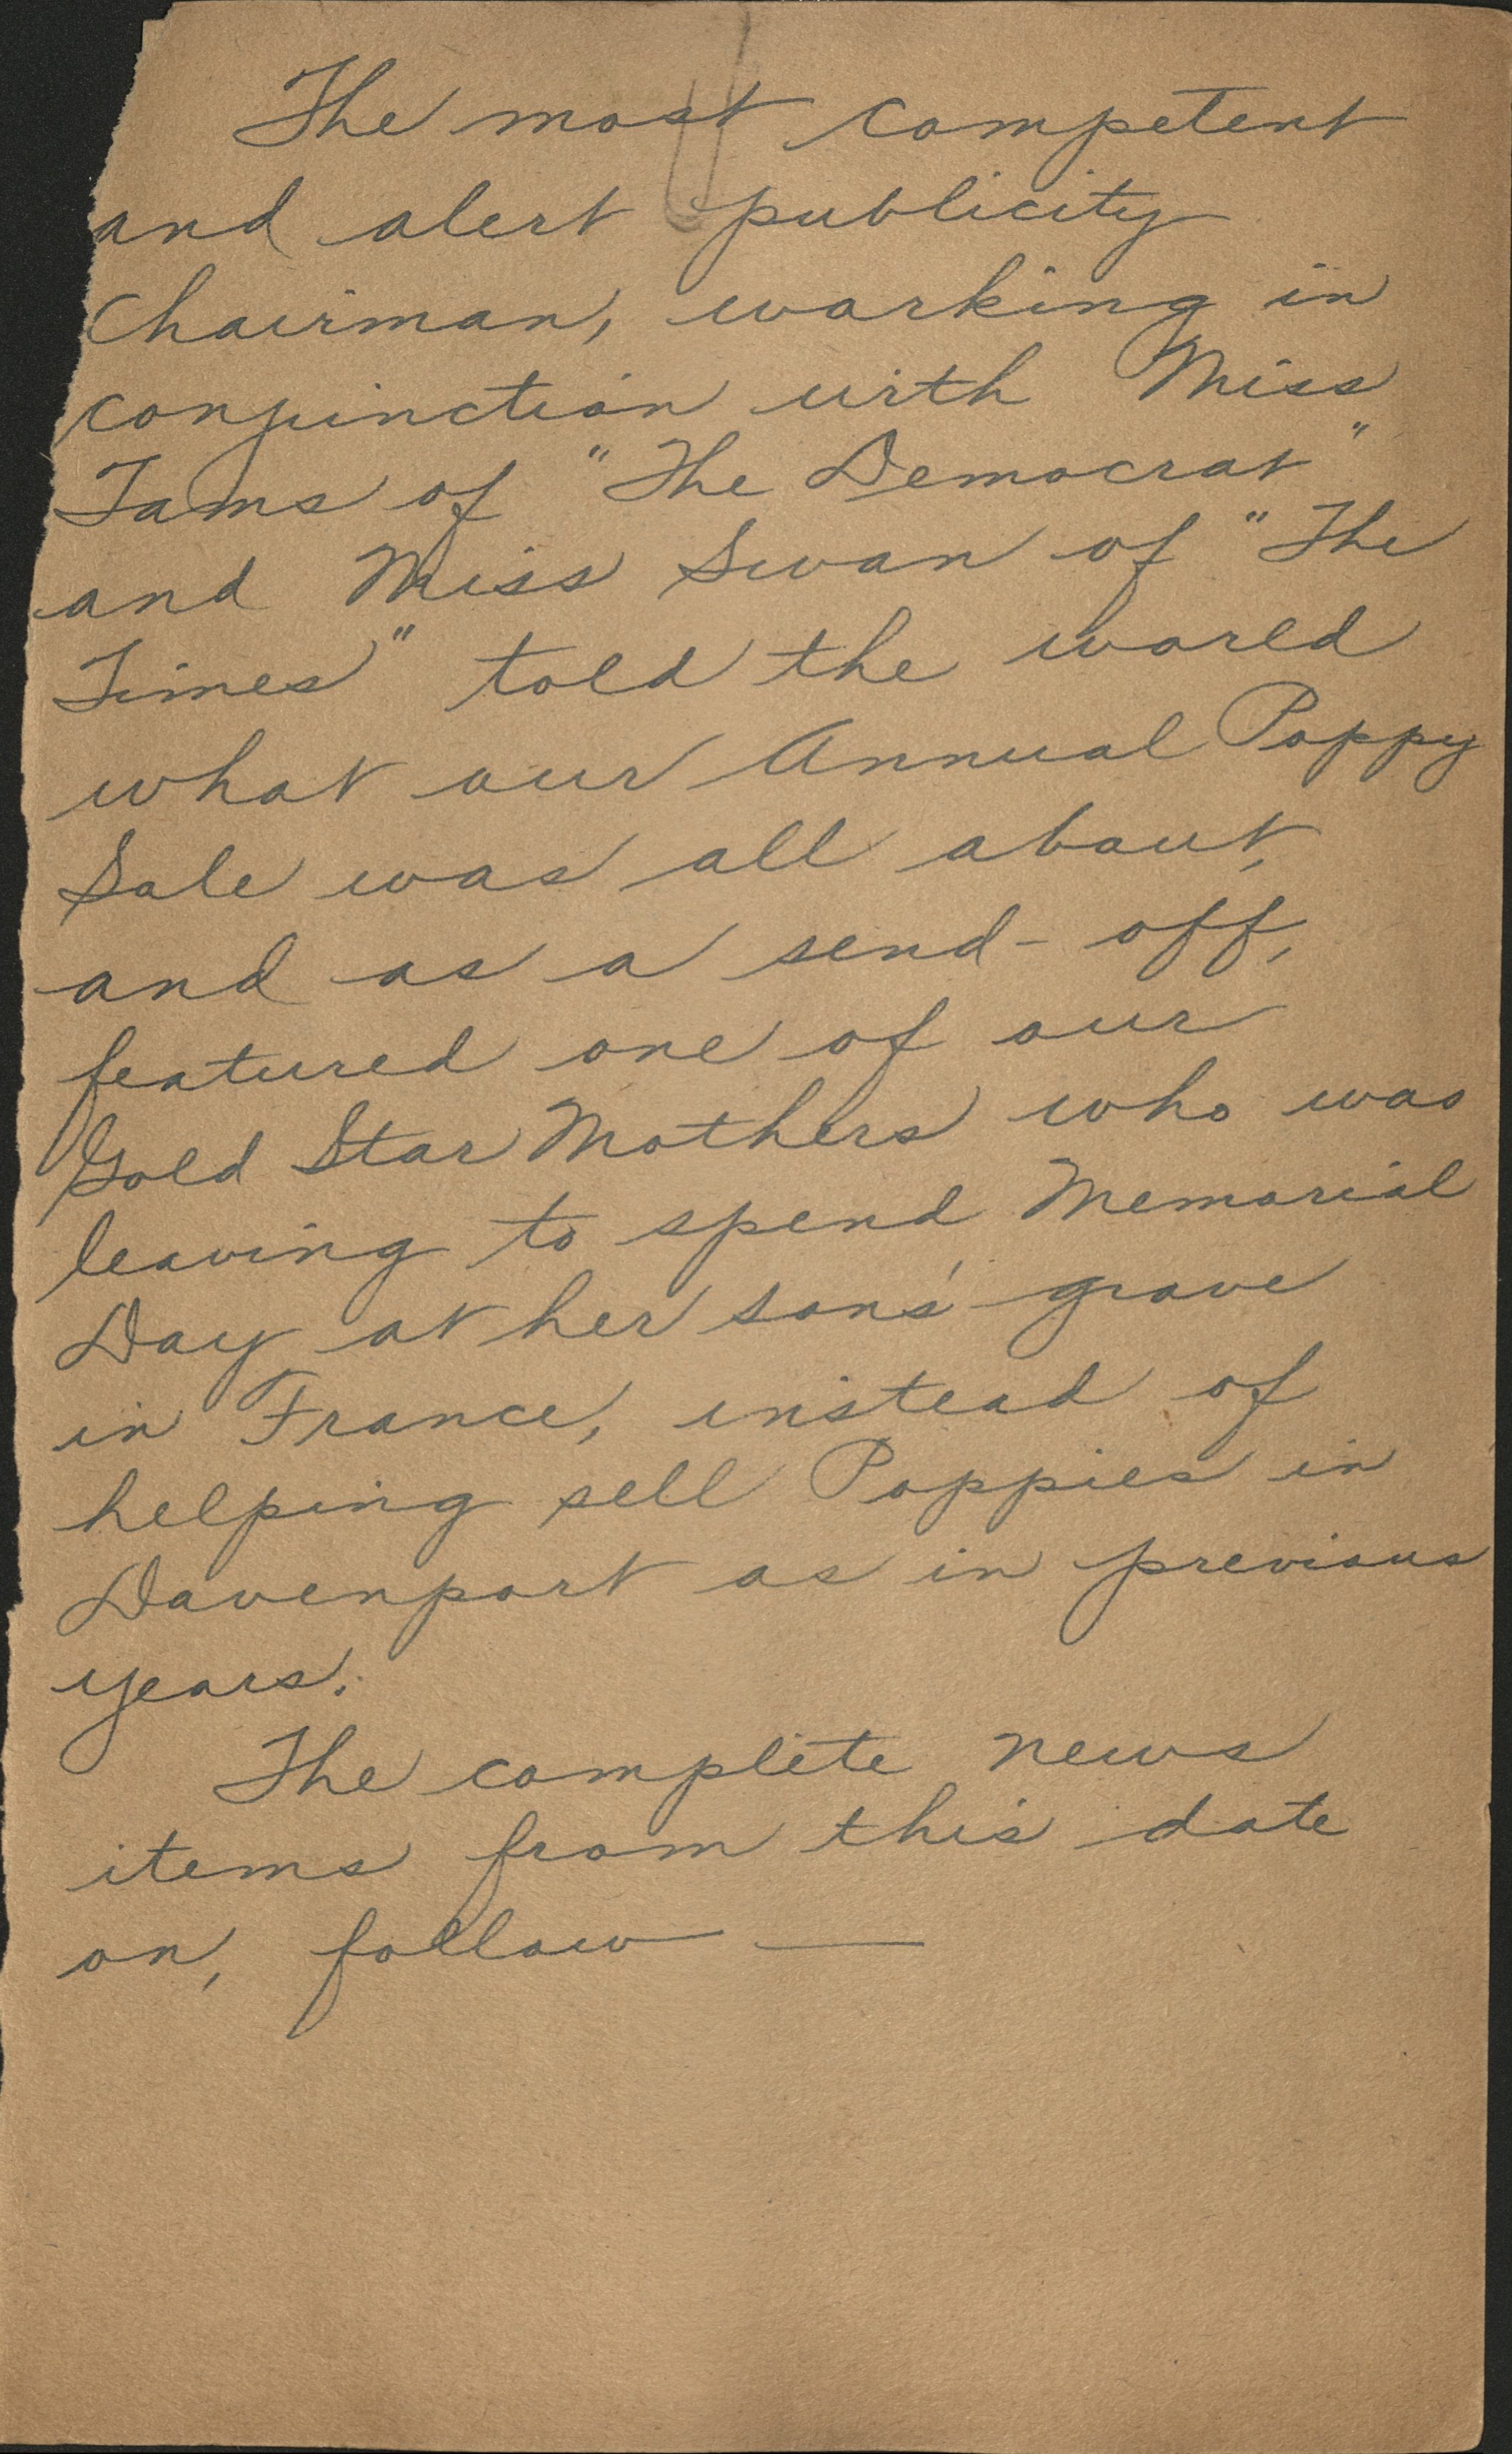 The most competent
and alert publicity
Chairman, working in
conjunction with Miss
Tams of "The Democrat"
and Miss Swan of "The
Times" told the world
what our Annual Poppy
Sale was all about,
and as a send-off,
featured one of our
Gold Star Mothers who was
leaving to spend Memorial
Day at her sons' grave
in France, instead of
helping sell Poppies in
Davenport as in previous
years.
The complete news
items from this date
on, follow —